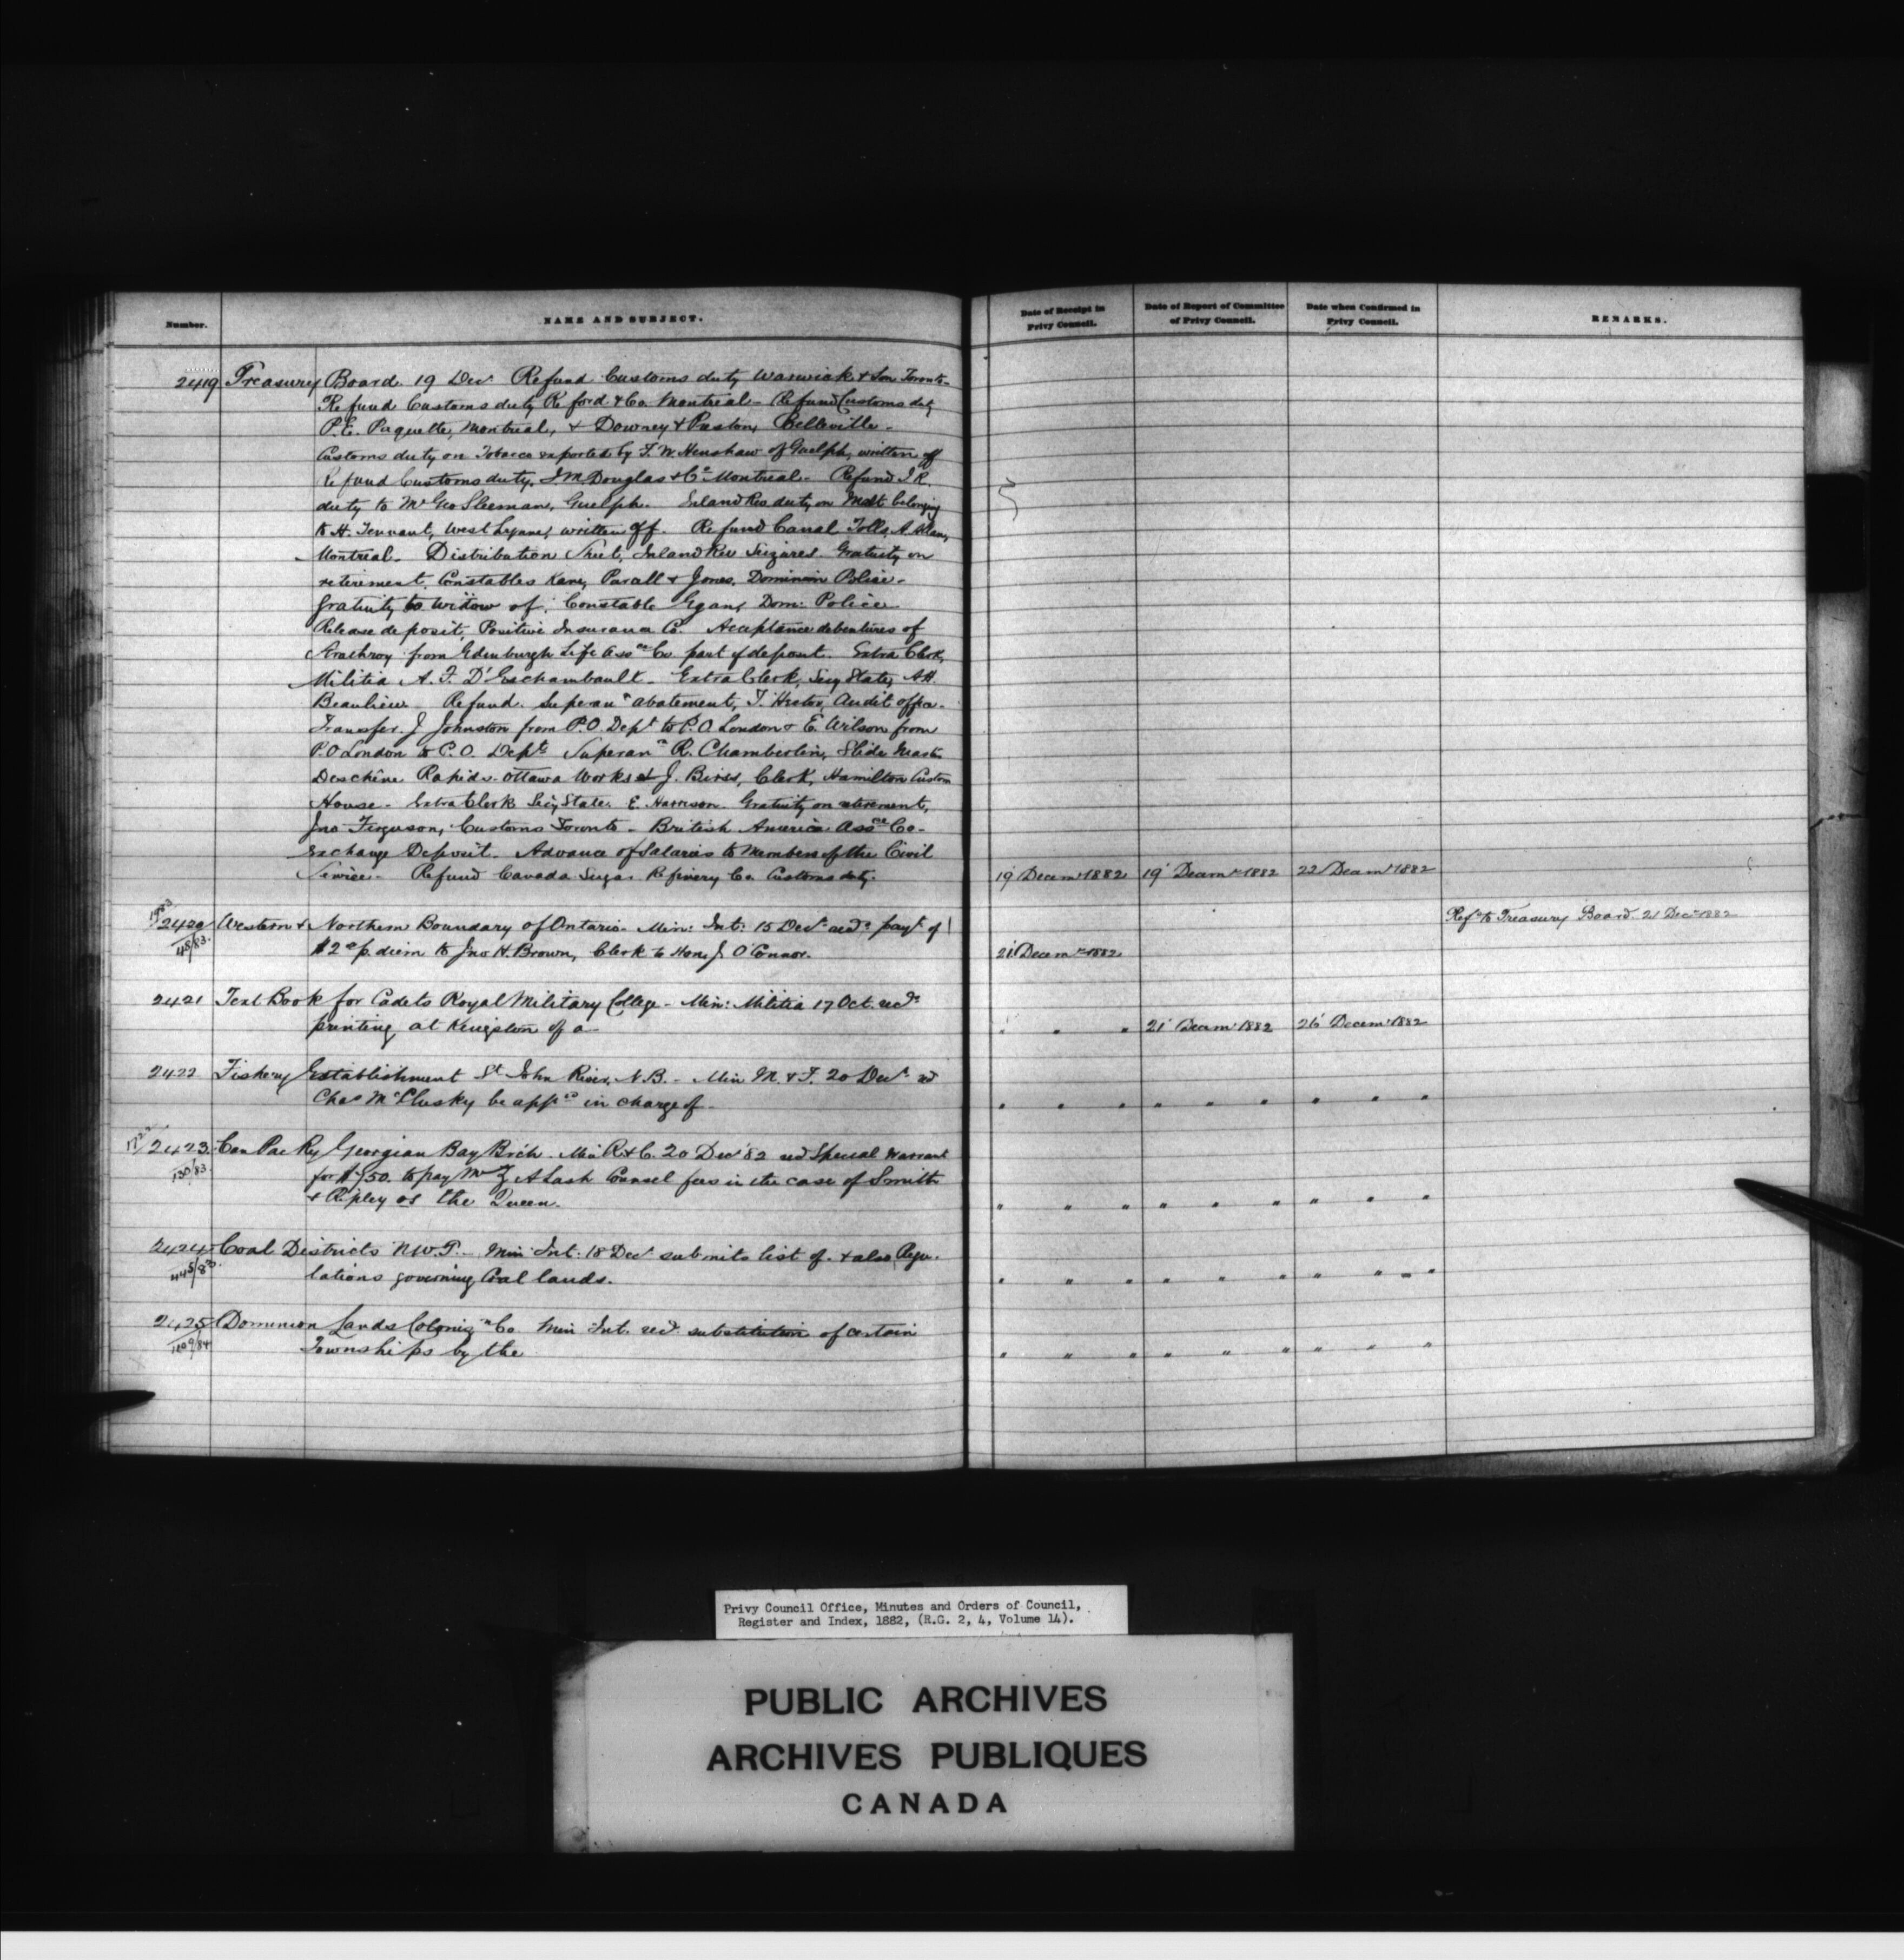 Number.
NAME AND SUBJECT.
Date of Receipt in
Privy Council.
Date of Report of Committee
of Privy Council.
Date when Confirmed in
Privy Council.
REMARKS.
2419 Treasury Board. 19 Decr Refund Customs duty Warwick & Son Toronto-
Refund Customs duty Reford & Co. Montreal- Refund Customs duty
P.E. Paquette, Montreal, & Downey & Preston, Belleville-
Customs duty on Tobacco exported by F. W. Henshaw of Guelph, written off
Refund Customs duty, J M Douglas & Co Montreal- Refund I R.
duty to Mr Geo Sleeman, Guelph. Inland Rev duty on Malt belonging
to H. Tennant, West written off. Refund Canal Tolls, A. Allan,
Montreal. Distribution Sheet, Inland Rev Seizures. Gratuity on
retirement, Constables Kane, & Jones, Dominion Police-
Gratuity to Widow of Constable Egan, Dom: Police
Release deposit, Positive Insurance Co. Acceptance debentures of
Strathroy from Edinburgh Life Assce Co. part of deposit. Extra Clerk,
Militia A. F. D'Eschambault- Extra Clerk, Secy State, A.H.
Beaulieu Refund. Superann abatement, T. Hector, Audit office-
Transfer. J Johnston from P.O. Dept to P.O. London & E. Wilson from
P.O London to P.O. Dept. Superann R. Chamberlin, Slide Master
Deschêne Rapids- Ottawa Works & J. Clerk, Hamilton Custom
House- Extra Clerk Secy State. E. Harrison. Gratuity on retirement,
Jno Ferguson, Customs Toronto- British America Assce Co-
Exchange Deposit. Advance of Salaries to Members of the Civil
Service- Refund Canada Sugar Refinery Co. Customs duty. 19 Decemr 1882 19 Decemr 1882 22 Decemr 1882
2420 Western & Northern Boundary of Ontario- Min: Int: 15 Decr recds payt of Refd to Treasury Board 21 Decr 1882
45/83. $2 p. diem to Jno H. Brown, Clerk to Hon J O'Connor. 21 Decemr 1882
2421 Text Book for Cadets Royal Military College- Min: Militia 17 Oct. recds
printing at Kingston of a- " " " 21 Decemr 1882 26 Decemr 1882
2422 Fishery Establishment St John River, N.B.- Min M. & F. 20 Decr recd
Chas McCluskey be appd in charge of- " " " " " " " " "
2423 Can Pac Ry Georgian Bay Brch. Min R & C. 20 Decr 82 recd Special Warrant
130/83 for $750. to pay Mr Z A Lash Counsel fees in the case of Smith
& Ripley vs the Queen. " " " " " " " " "
2424 Coal Districts N.W.T.- Min Int: 18 Decr submits list of- & also Regu-
445/83. lations governing Coal lands. " " " " " " " " "
2425 Dominion Lands Colonizn Co. Min Int. recd substitution of certain
Townships by the " " " " " " " " "
Privy Council Office, Minutes and Orders of Council,
Register and Index, 1882, (R.G. 2, 4, Volume 14).
PUBLIC ARCHIVES
ARCHIVES PUBLIQUES
CANADA